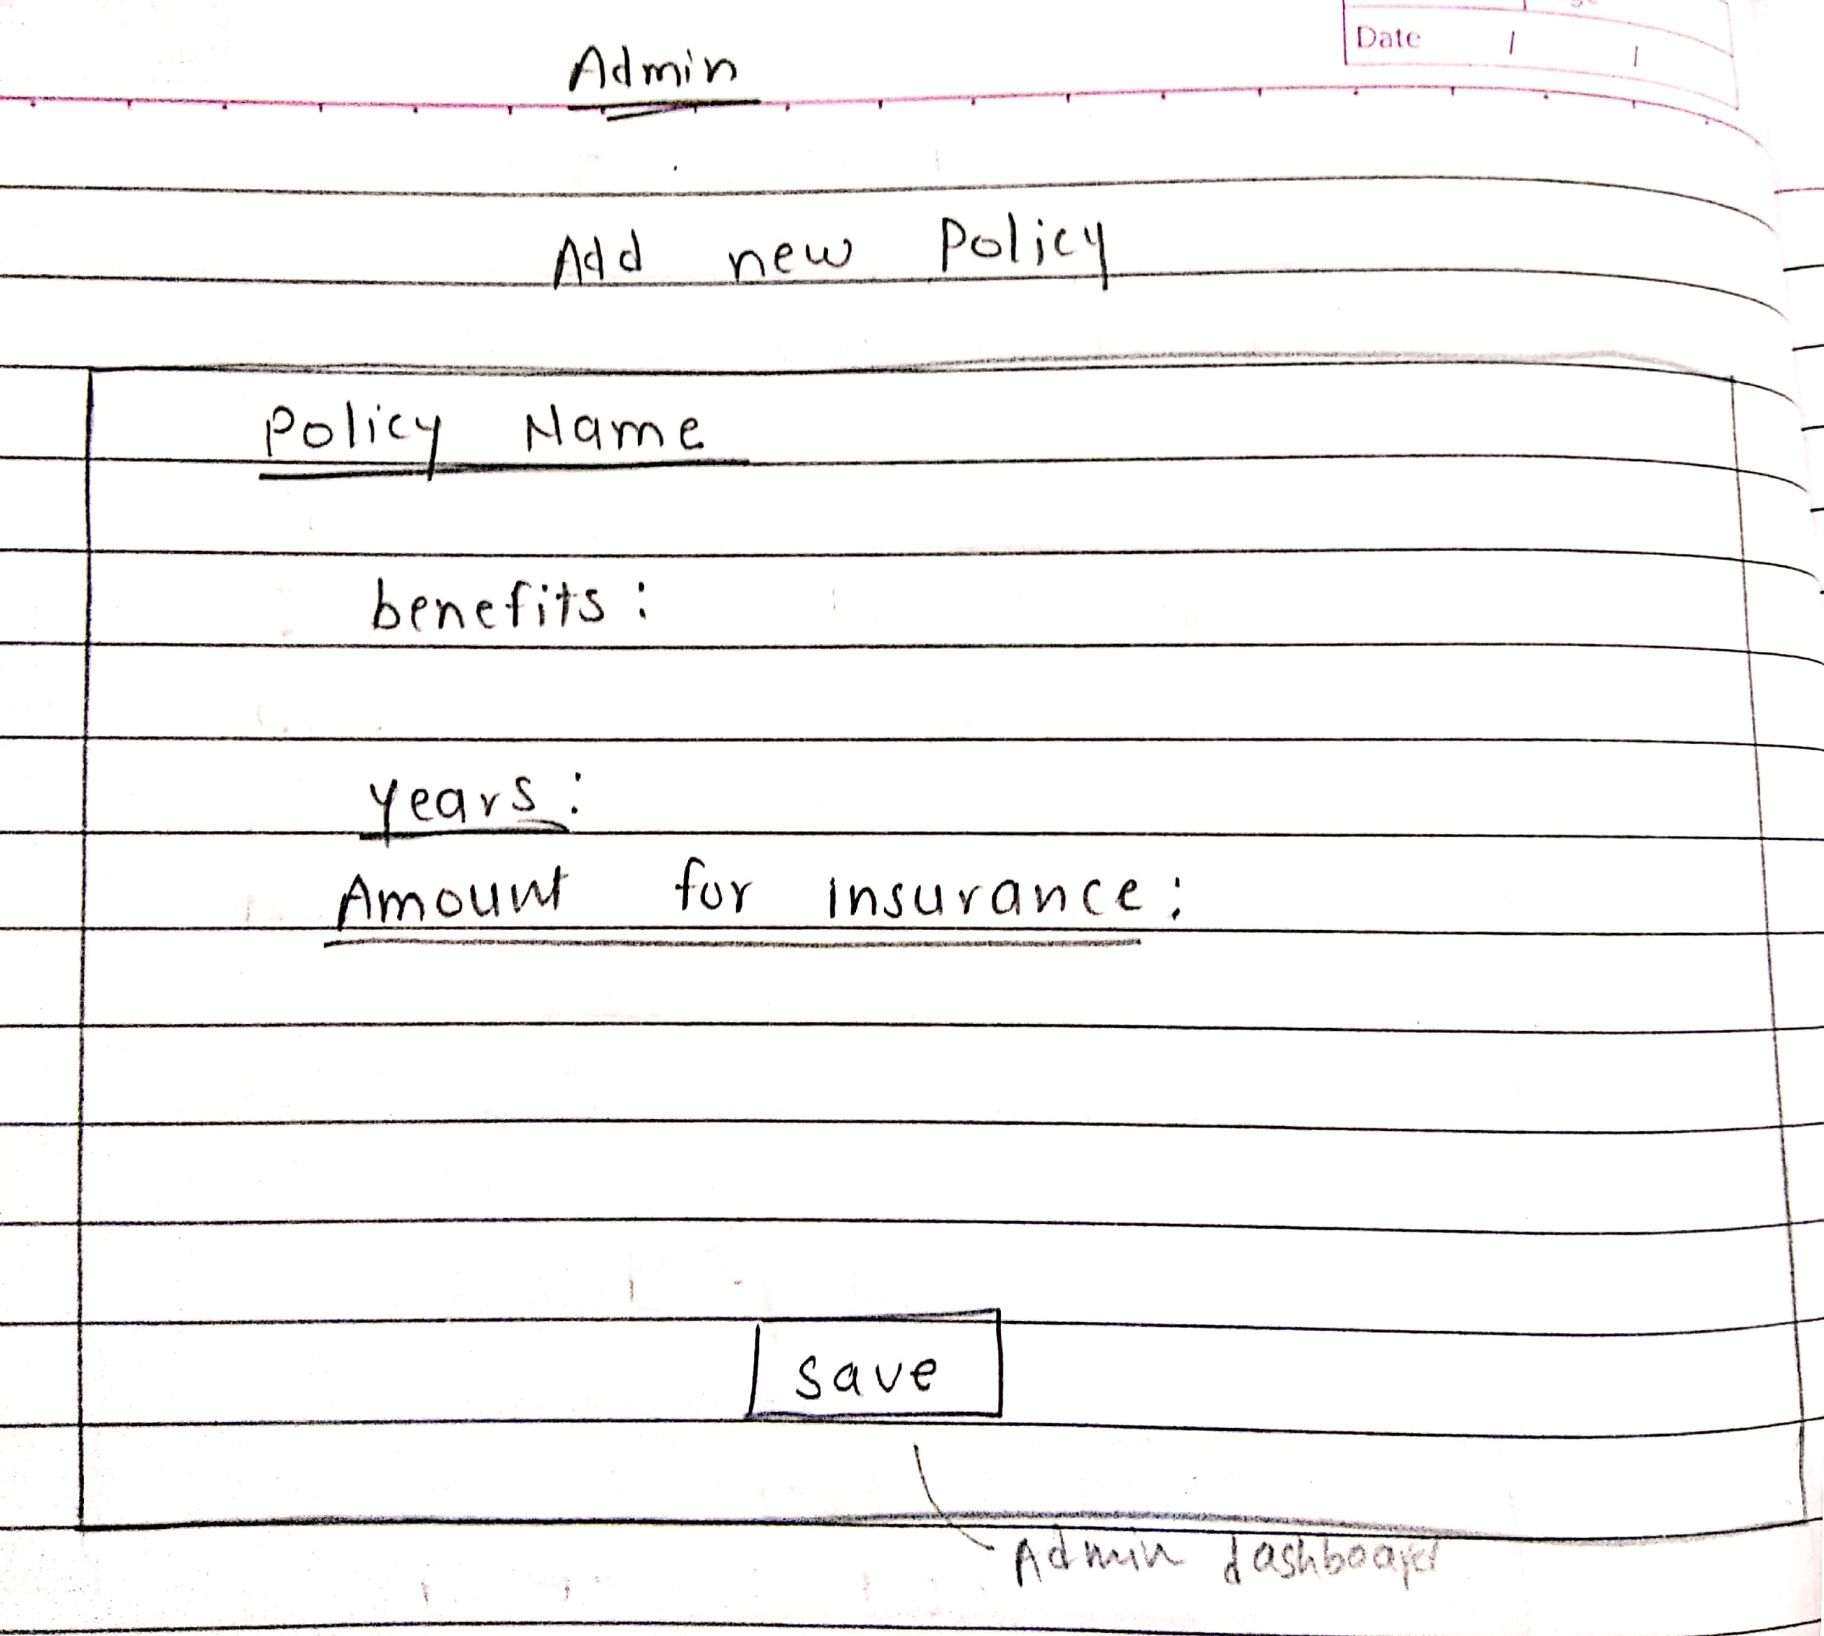 Date / /
Admin
Add new Policy
Policy Name
benefits :
years :
Amount for insurance :
save
Admin dashboard